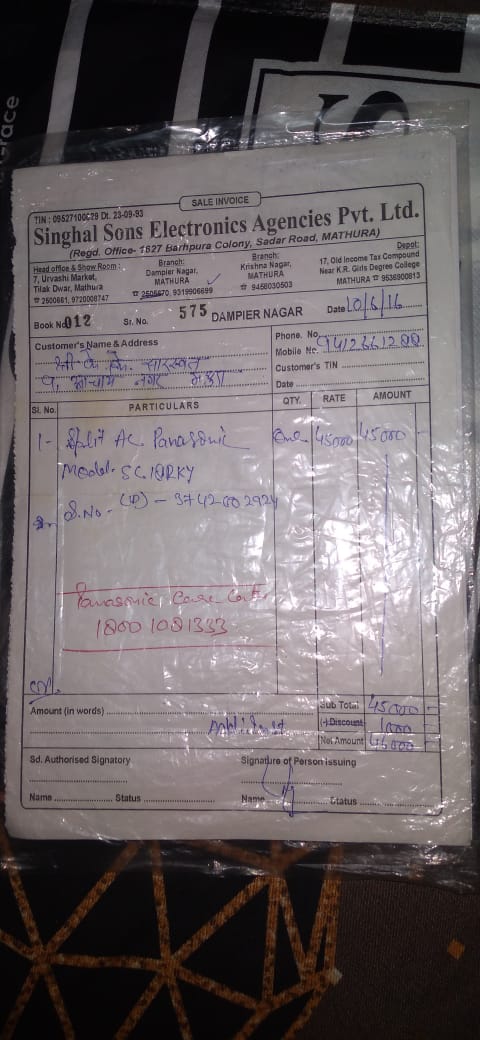 SALE INVOICE
TIN : 09527100629 Dt. 23-09-93
Singhal Sons Electronics Agencies Pvt. Ltd.
(Regd. Office- 1627 Barhpura Colony, Sadar Road, MATHURA)
Head office & Show Room :
7, Urvashi Market,
Tilak Dwar, Mathura
☎ 2500661, 9720008747
Branch:
Dampier Nagar,
MATHURA
9319906699
Branch:
Krishna Nagar,
MATHURA
☎ 9458030503
Depot:
17, Old Income Tax Compound
Near K.R. Girls Degree College
MATHURA ☎ 9536900813
Book No. 012 Sr. No. 575 DAMPIER NAGAR Date 10/6/16
Customer's Name & Address
श्री के. के. सारस्वत
नगर
Phone. No.
Mobile No.
Customer's TIN
Date
Sl. No. PARTICULARS QTY. RATE AMOUNT
1- Split Ac Panasonic One 45000 45000
Model-
S.No -
Panasonic Care
1800 1081333
Amount (in words)
Sub Total 45000
(+) Discount 1000
Net Amount 46000
Sd. Authorised Signatory
Signature of Person Issuing
Name Status
Name Status